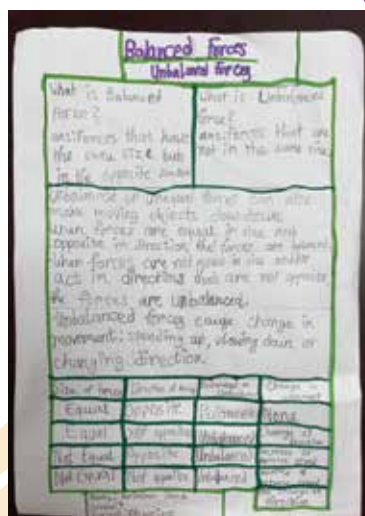 Balanced Forces
Unbalanced forces
What is Balanced
Force?
ans: Forces that have
the same size but
in the opposite
What is Unbalanced
force?
ans: forces that are
not in the same size
Unbalance or unequal forces can also
make moving objects slowdown
when forces are equal in size and
opposite in direction, the forces are balanced
when forces are not equal in size and/or
act in directions that are not opposite,
the forces are unbalanced.
Unbalanced forces cause change in
movement: speeding up, slowing down or
changing direction.
Size of forces
Direction of
Balanced or
Change in
Equal
Opposite
Balanced
None
Equal
Not opposite
Unbalanced
Change of
direction
Not Equal
Opposite
Unbalanced
Not Equal
Not opposite
Unbalanced